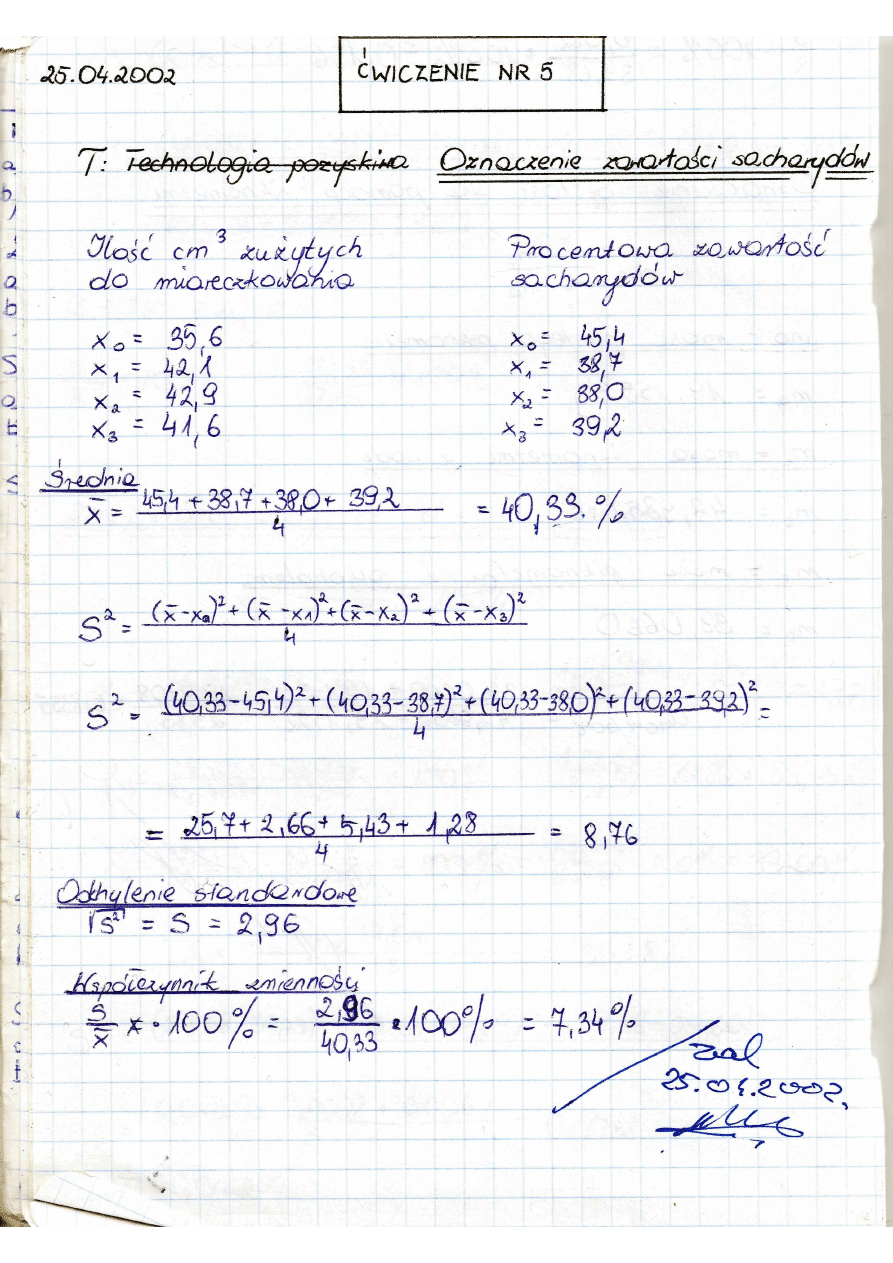 25.04.2002
ĆWICZENIE NR 5
T: Technologia pozyskiwa Oznaczenie zawartości sacharydów
Ilość cm³ zużytych
do miareczkowania
x₀ = 35,6
x₁ = 42,1
x₂ = 42,9
x₃ = 41,6
Procentowa zawartość
sacharydów
x₀ = 45,4
x₁ = 38,7
x₂ = 38,0
x₃ = 39,2
Średnia
x̄ = (45,4 + 38,7 + 38,0 + 39,2) / 4 = 40,33 %
S² = ((x̄-x₀)² + (x̄-x₁)² + (x̄-x₂)² + (x̄-x₃)²) / 4
S² = ((40,33-45,4)² + (40,33-38,7)² + (40,33-38,0)² + (40,33-39,2)²) / 4 =
= (25,7 + 2,66 + 5,43 + 1,28) / 4 = 8,76
Odchylenie standardowe
√S² = S = 2,96
Współczynnik zmienności
S / x̄ · 100% = 2,96 / 40,33 · 100% = 7,34%
zal
25.04.2002.